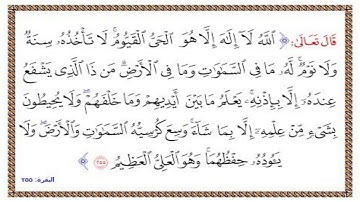 قَالَ تَعَالَىٰ: ﴿ ٱللَّهُ لَآ إِلَٰهَ إِلَّا هُوَ ٱلْحَىُّ ٱلْقَيُّومُ ۚ لَا تَأْخُذُهُۥ سِنَةٌ
وَلَا نَوْمٌ ۚ لَّهُۥ مَا فِى ٱلسَّمَٰوَٰتِ وَمَا فِى ٱلْأَرْضِ ۗ مَن ذَا ٱلَّذِى يَشْفَعُ
عِندَهُۥٓ إِلَّا بِإِذْنِهِۦ ۚ يَعْلَمُ مَا بَيْنَ أَيْدِيهِمْ وَمَا خَلْفَهُمْ ۖ وَلَا يُحِيطُونَ
بِشَىْءٍ مِّنْ عِلْمِهِۦٓ إِلَّا بِمَا شَآءَ ۚ وَسِعَ كُرْسِيُّهُ ٱلسَّمَٰوَٰتِ وَٱلْأَرْضَ ۖ وَلَا
يَـُٔودُهُۥ حِفْظُهُمَا ۚ وَهُوَ ٱلْعَلِىُّ ٱلْعَظِيمُ ٢٥٥ ﴾
البقرة: ٢٥٥